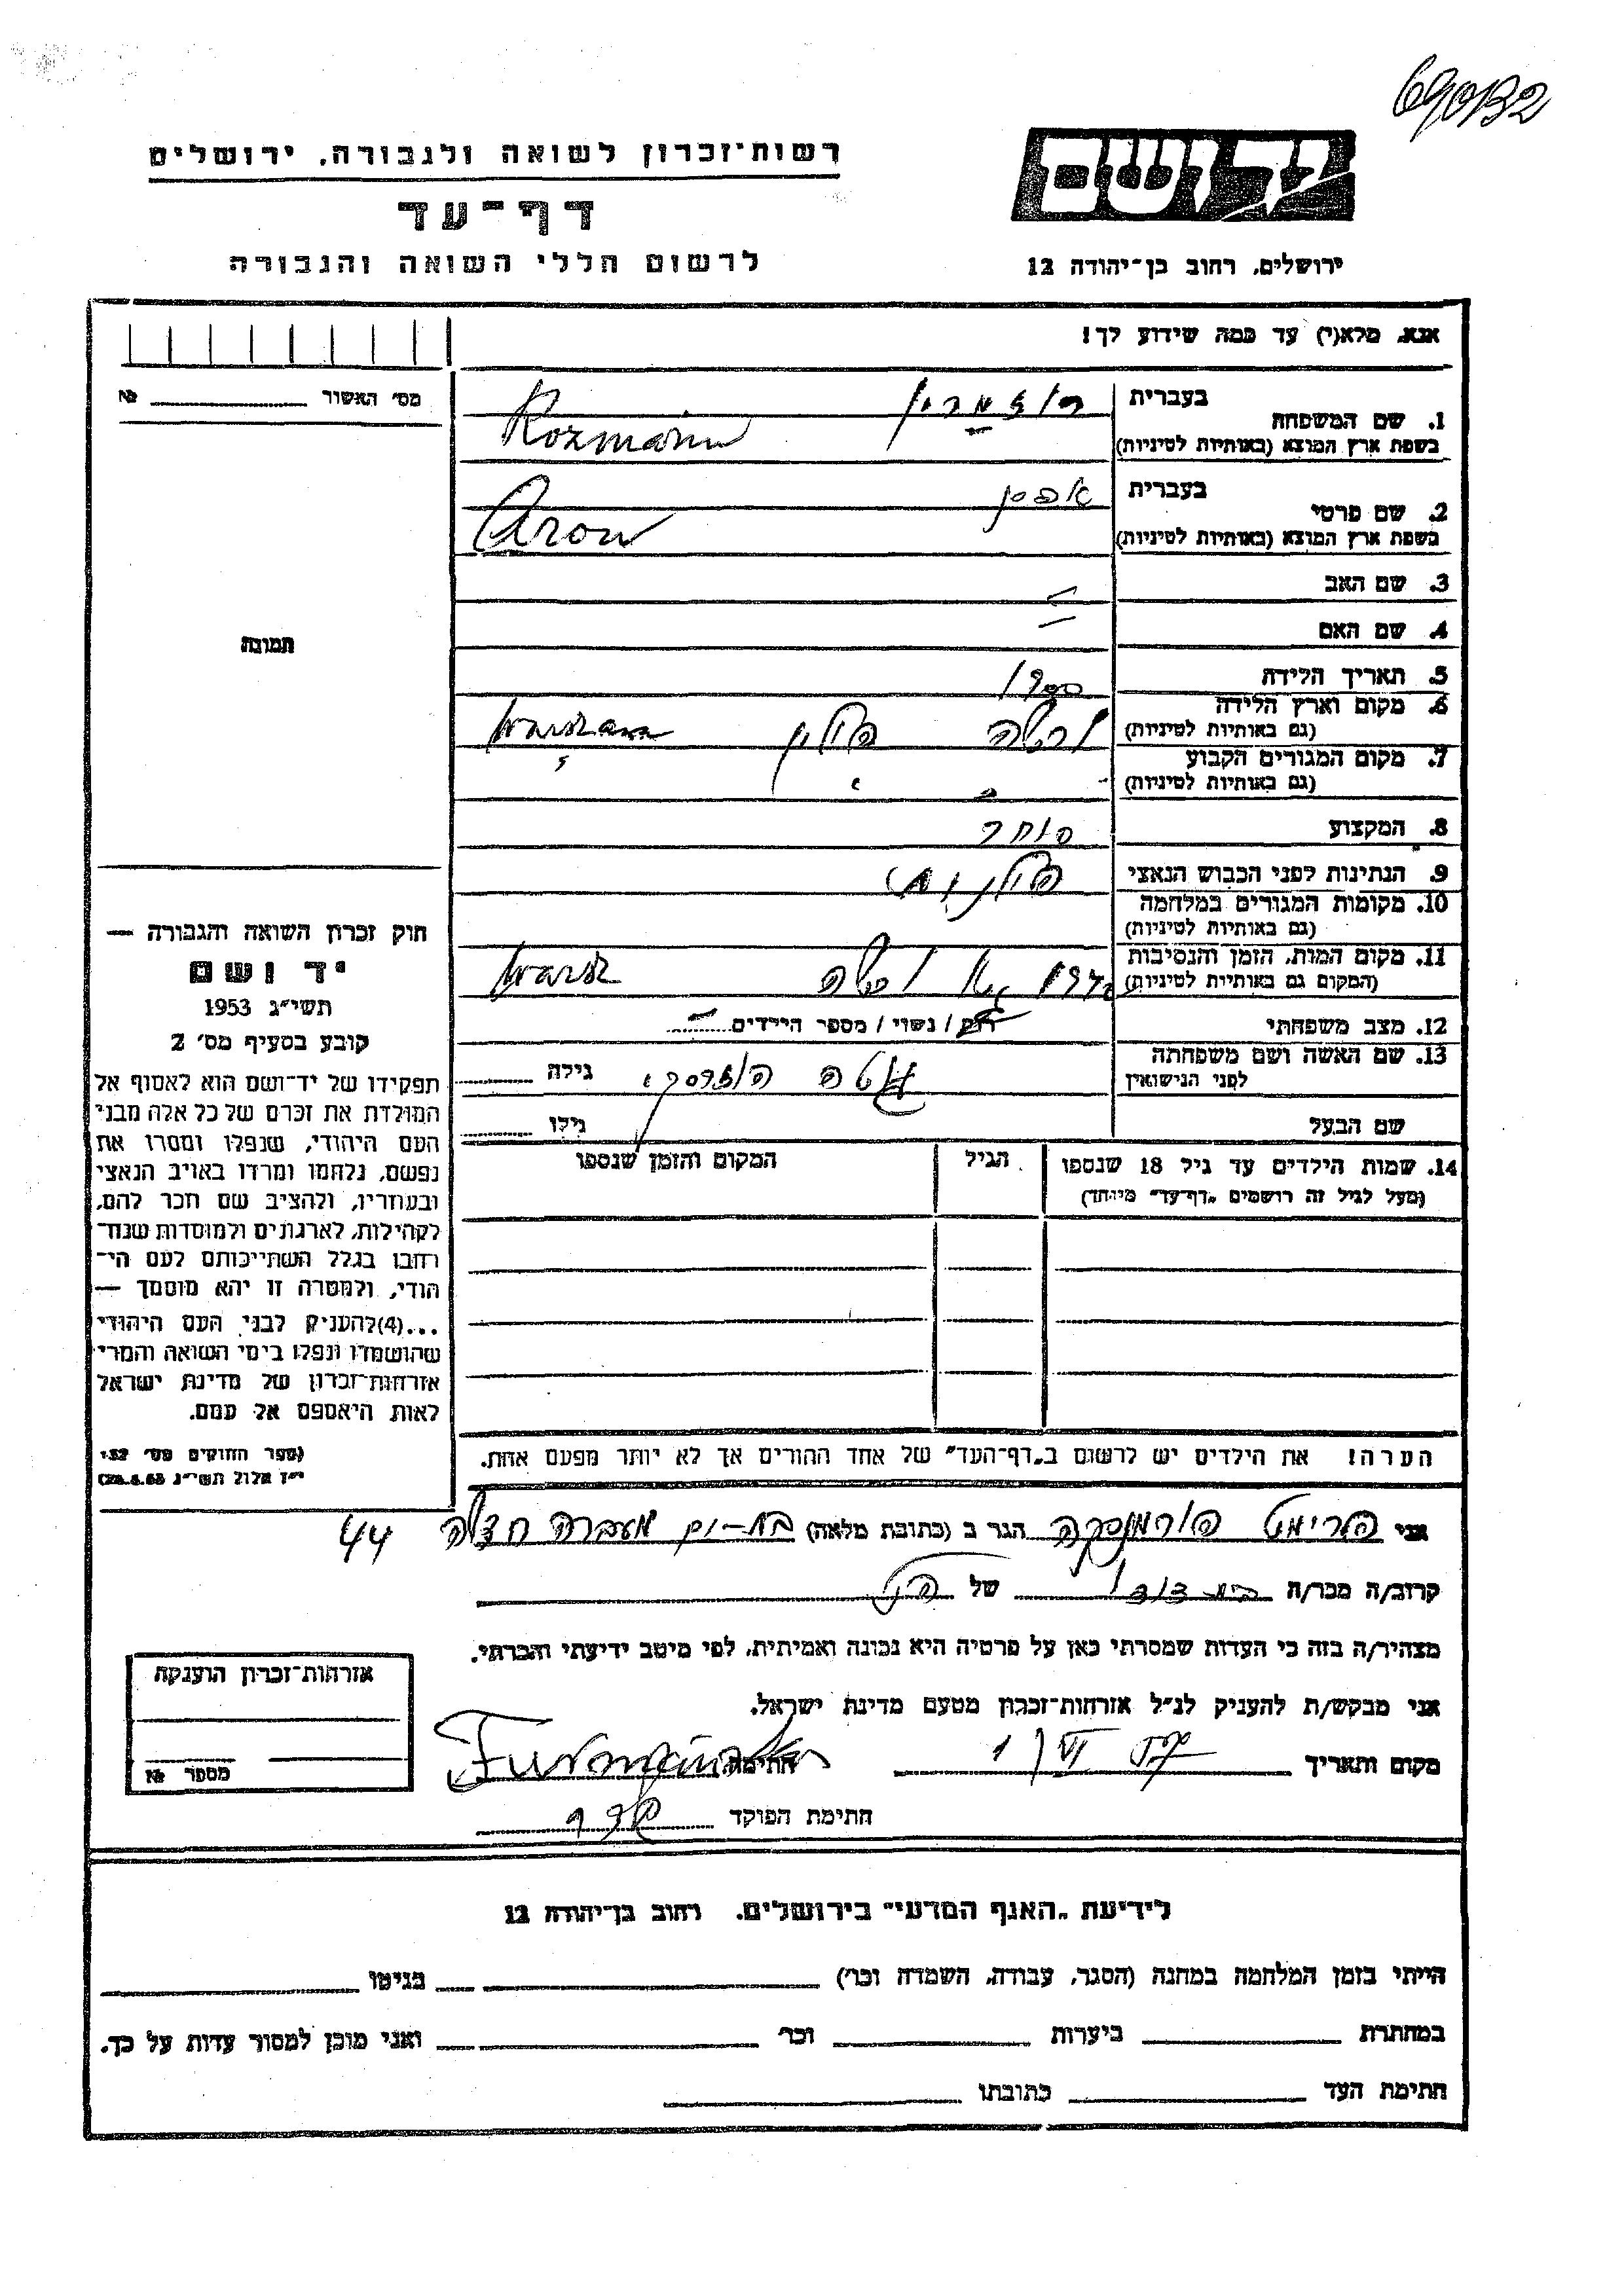 690132
רשות־זכרון לשואה ולגבורה, ירושלים
יד ושם
דף־עד
לרשום חללי השואה והגבורה
ירושלים, רחוב בן־יהודה 12
אנא, מלא(י) עד כמה שידוע לך!
מס׳ האשור № 
1. שם המשפחה
בעברית
בשפת ארץ המוצא (באותיות לטיניות) Rozmarin
2. שם פרטי
בעברית
בשפת ארץ המוצא (באותיות לטיניות) Aron
3. שם האב —
4. שם האם —
תמונה
5. תאריך הלידה 1900
6. מקום וארץ הלידה (גם באותיות לטיניות) ורשה פולין Warszawa
7. מקום המגורים הקבוע (גם באותיות לטיניות) "
8. המקצוע סוחר
9. הנתינות לפני הכבוש הנאצי פולנית
10. מקומות המגורים במלחמה (גם באותיות לטיניות)
11. מקום המות, הזמן והנסיבות (המקום גם באותיות לטיניות) ורשה Warsz
12. מצב משפחתי רוק / נשוי / מספר הילדים —
13. שם האשה ושם משפחתה לפני הנישואין גילה
שם הבעל גילו
14. שמות הילדים עד גיל 18 שנספו הגיל המקום והזמן שנספו
(מעל לגיל זה רושמים „דף־עד״ מיוחד)
הערה! את הילדים יש לרשום ב„דף־העד״ של אחד ההורים אך לא יותר מפעם אחת.
חוק זכרון השואה והגבורה —
יד ושם
תשי״ג 1953
קובע בסעיף מס׳ 2
תפקידו של יד־ושם הוא לאסוף אל
המולדת את זכרם של כל אלה מבני
העם היהודי, שנפלו ומסרו את
נפשם, נלחמו ומרדו באויב הנאצי
ובעוזריו, ולהציב שם וזכר להם,
לקהילות, לארגונים ולמוסדות שנח־
רבו בגלל השתייכותם לעם הי־
הודי, ולמטרה זו יהא מוסמך —
...(4)להעניק לבני העם היהודי
שהושמדו ונפלו בימי השואה והמרי
אזרחות־זכרון של מדינת ישראל
לאות היאספם אל עמם.
(ספר החוקים מס׳ 132
י״ז אלול תשי״ג 28.8.53)
אני פורמנסקה הגר ב (כתובת מלאה) בת-ים מעברה 44
קרוב/ה מכר/ה בת דוד של הנ״ל
מצהיר/ה בזה כי העדות שמסרתי כאן על פרטיה היא נכונה ואמיתית, לפי מיטב ידיעתי והכרתי.
אני מבקש/ת להעניק לנ״ל אזרחות־זכרון מטעם מדינת ישראל.
מקום ותאריך חתימה Furmańska
חתימת הפוקד
אזרחות־זכרון הוענקה
מספר №
לידיעת „האגף המדעי״ בירושלים, רחוב בן־יהודה 12
הייתי בזמן המלחמה במחנה (הסגר, עבודה, השמדה וכו׳) בגיטו
במחתרת ביערות וכו׳ ואני מוכן למסור עדות על כך.
חתימת העד כתובתו